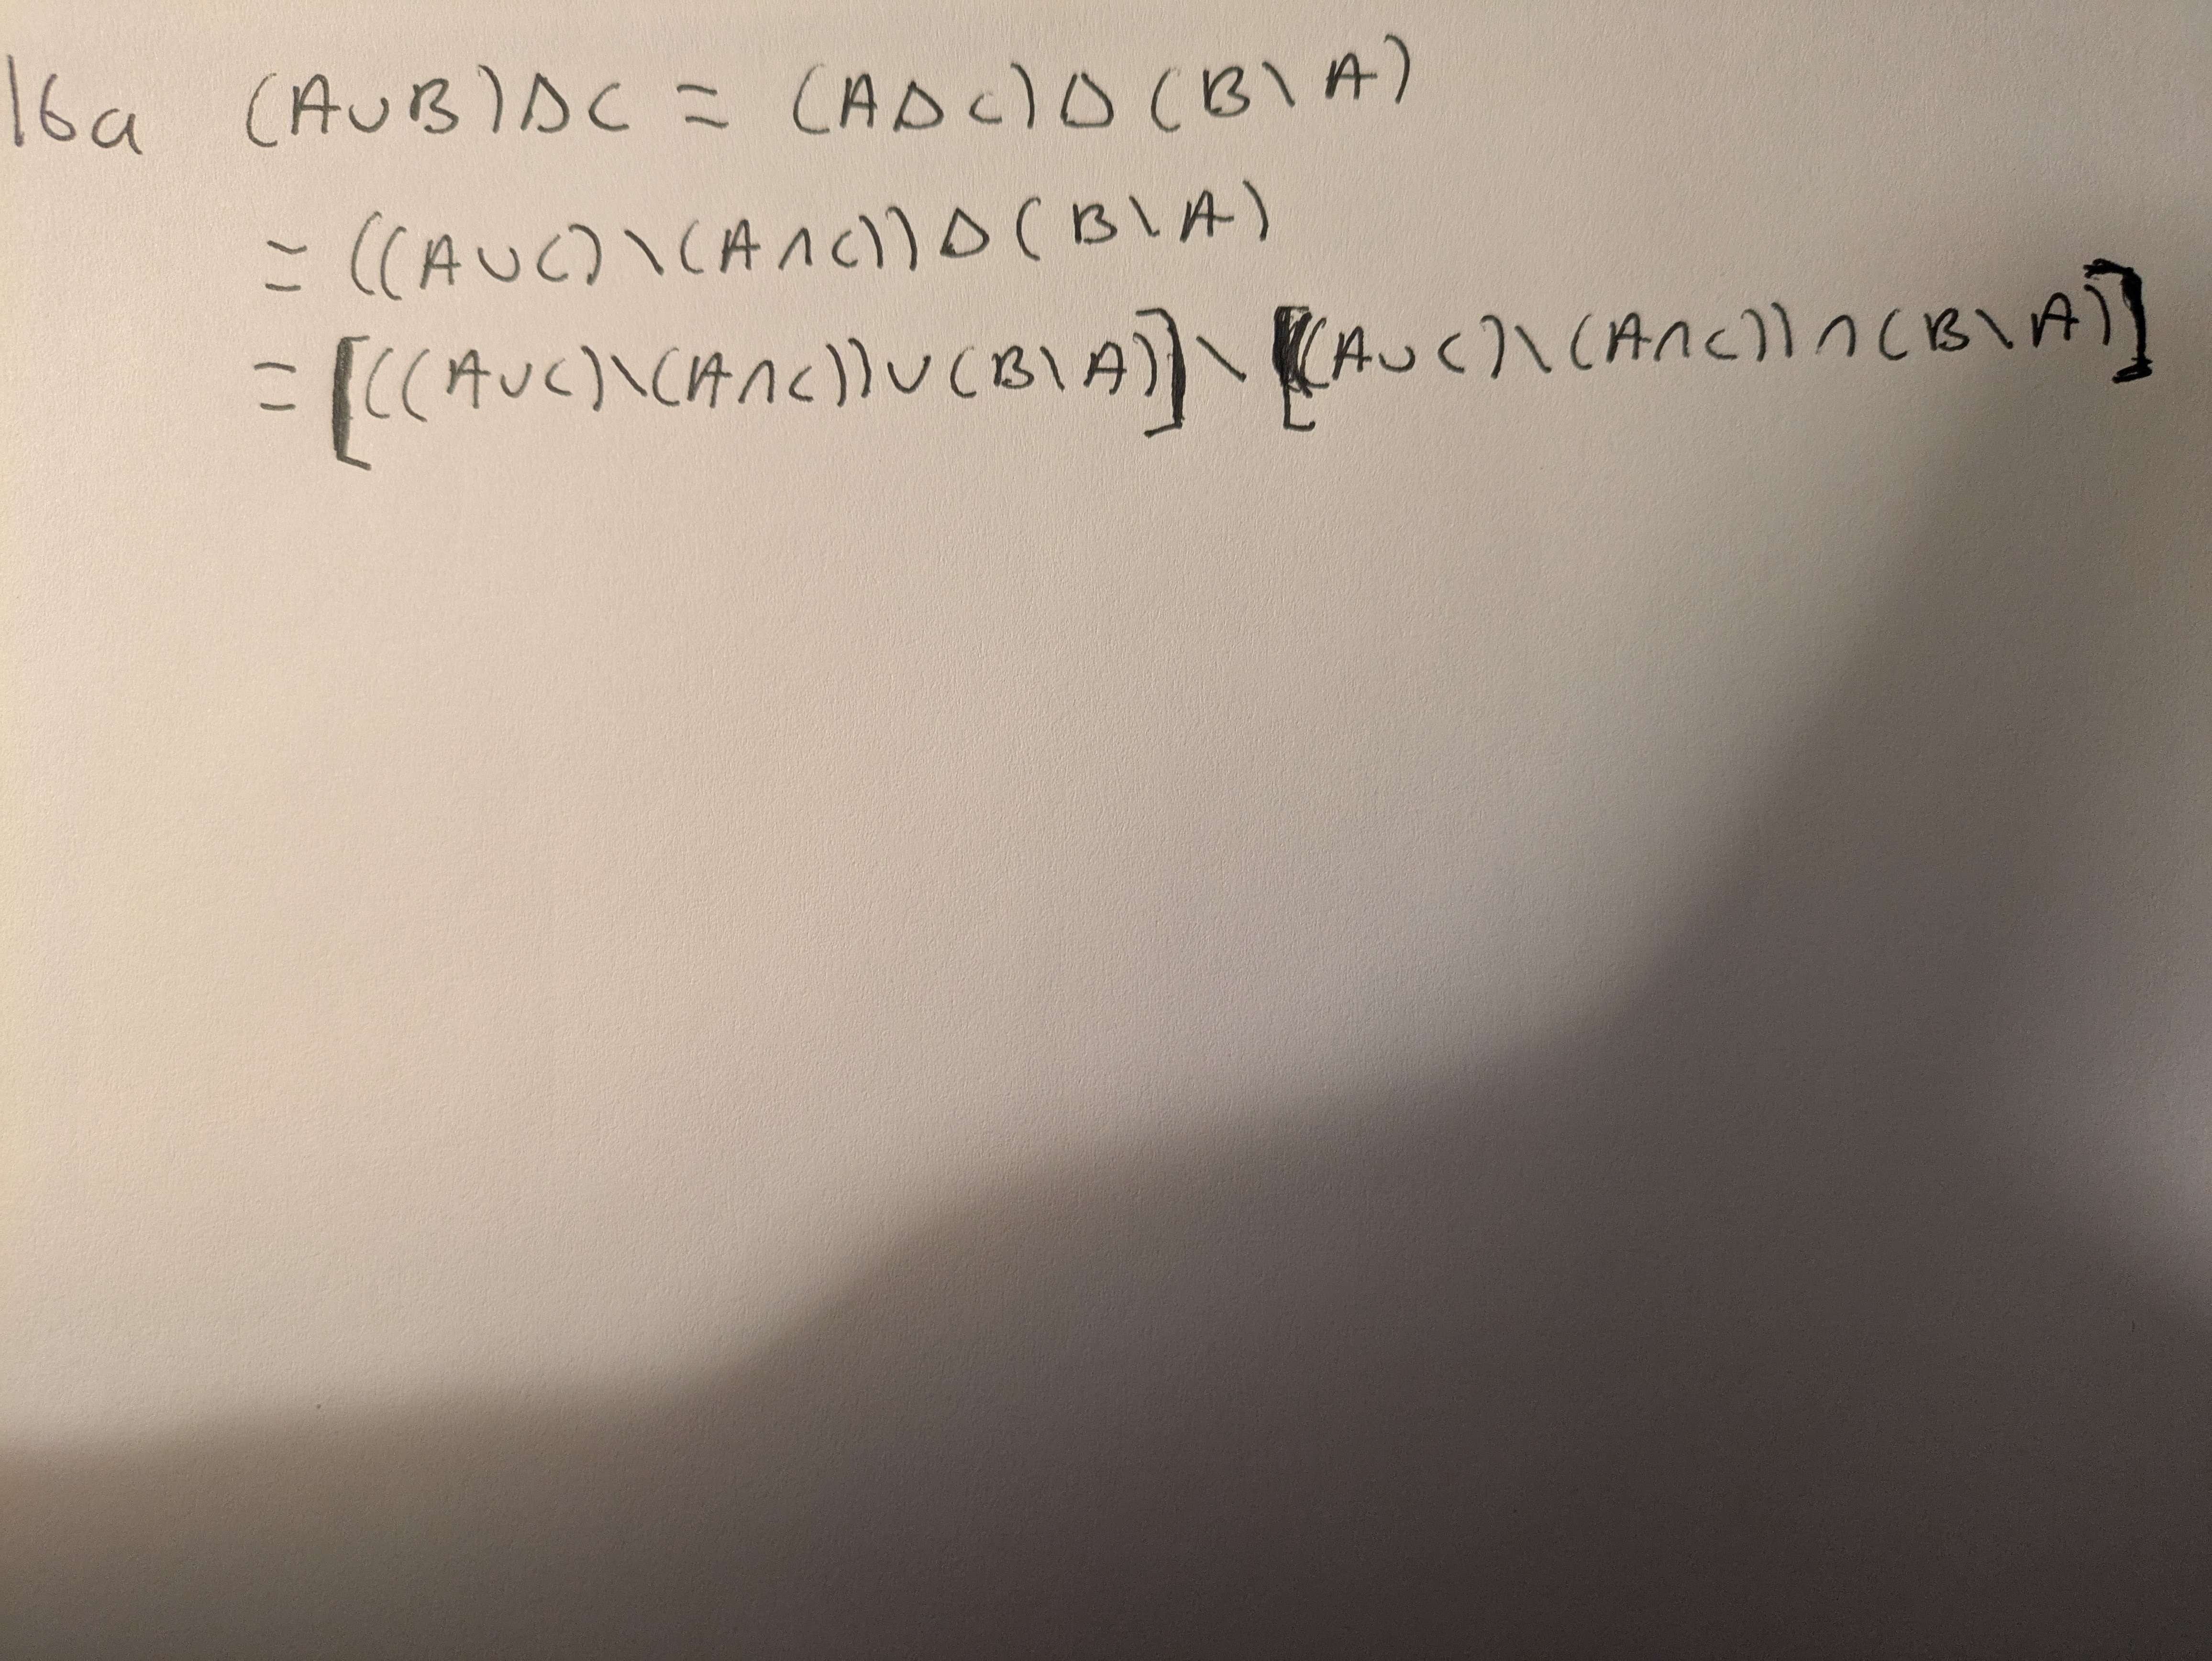 16a (A∪B)∆C = (A∆C)∆(B\A)
= ((A∪C)\(A∩C))∆(B\A)
= [(((A∪C)\(A∩C))∪(B\A))]\[((A∪C)\(A∩C))∩(B\A)]